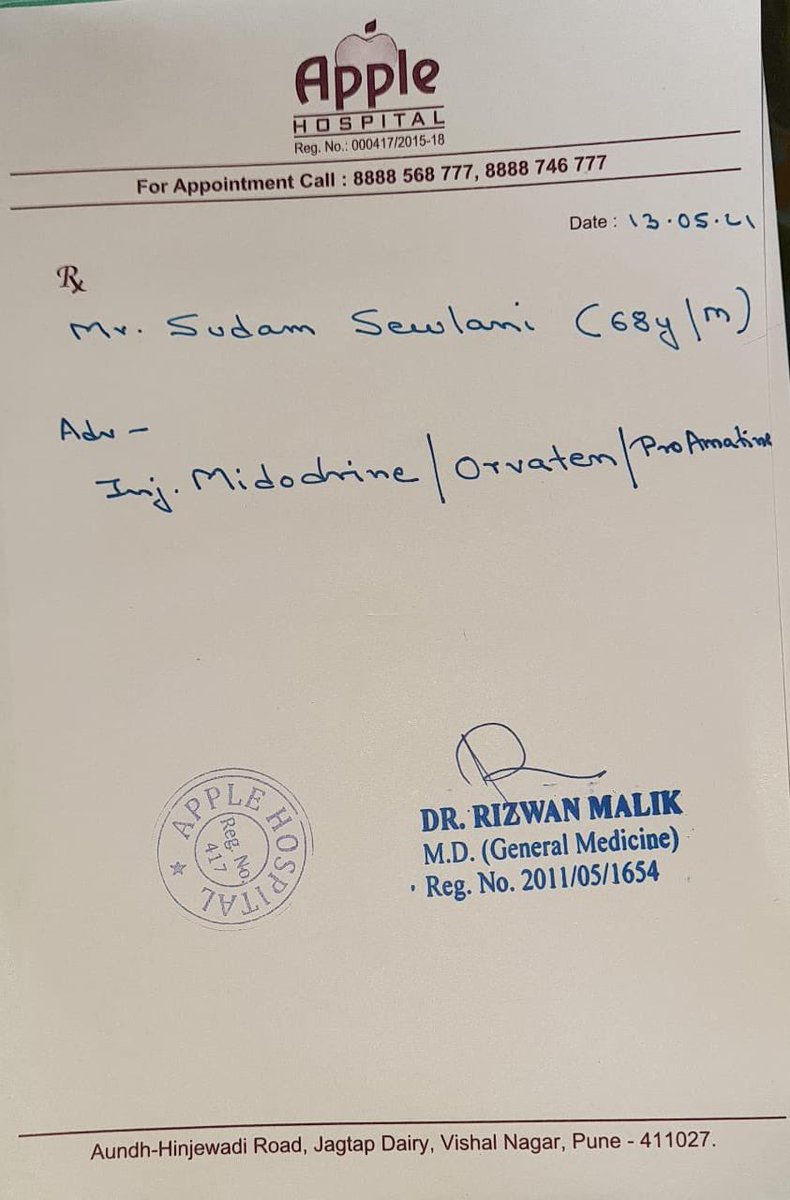 Apple
HOSPITAL
Reg. No.: 000417/2015-18
For Appointment Call : 8888 568 777, 8888 746 777
Date : 13.05.21
Rx
Mr. Sudam Sewlani (68y/m)
Adv -
Inj. Midodrine / Orvaten / ProAmatine
APPLE HOSPITAL
Reg. No.
417
DR. RIZWAN MALIK
M.D. (General Medicine)
Reg. No. 2011/05/1654
Aundh-Hinjewadi Road, Jagtap Dairy, Vishal Nagar, Pune - 411027.